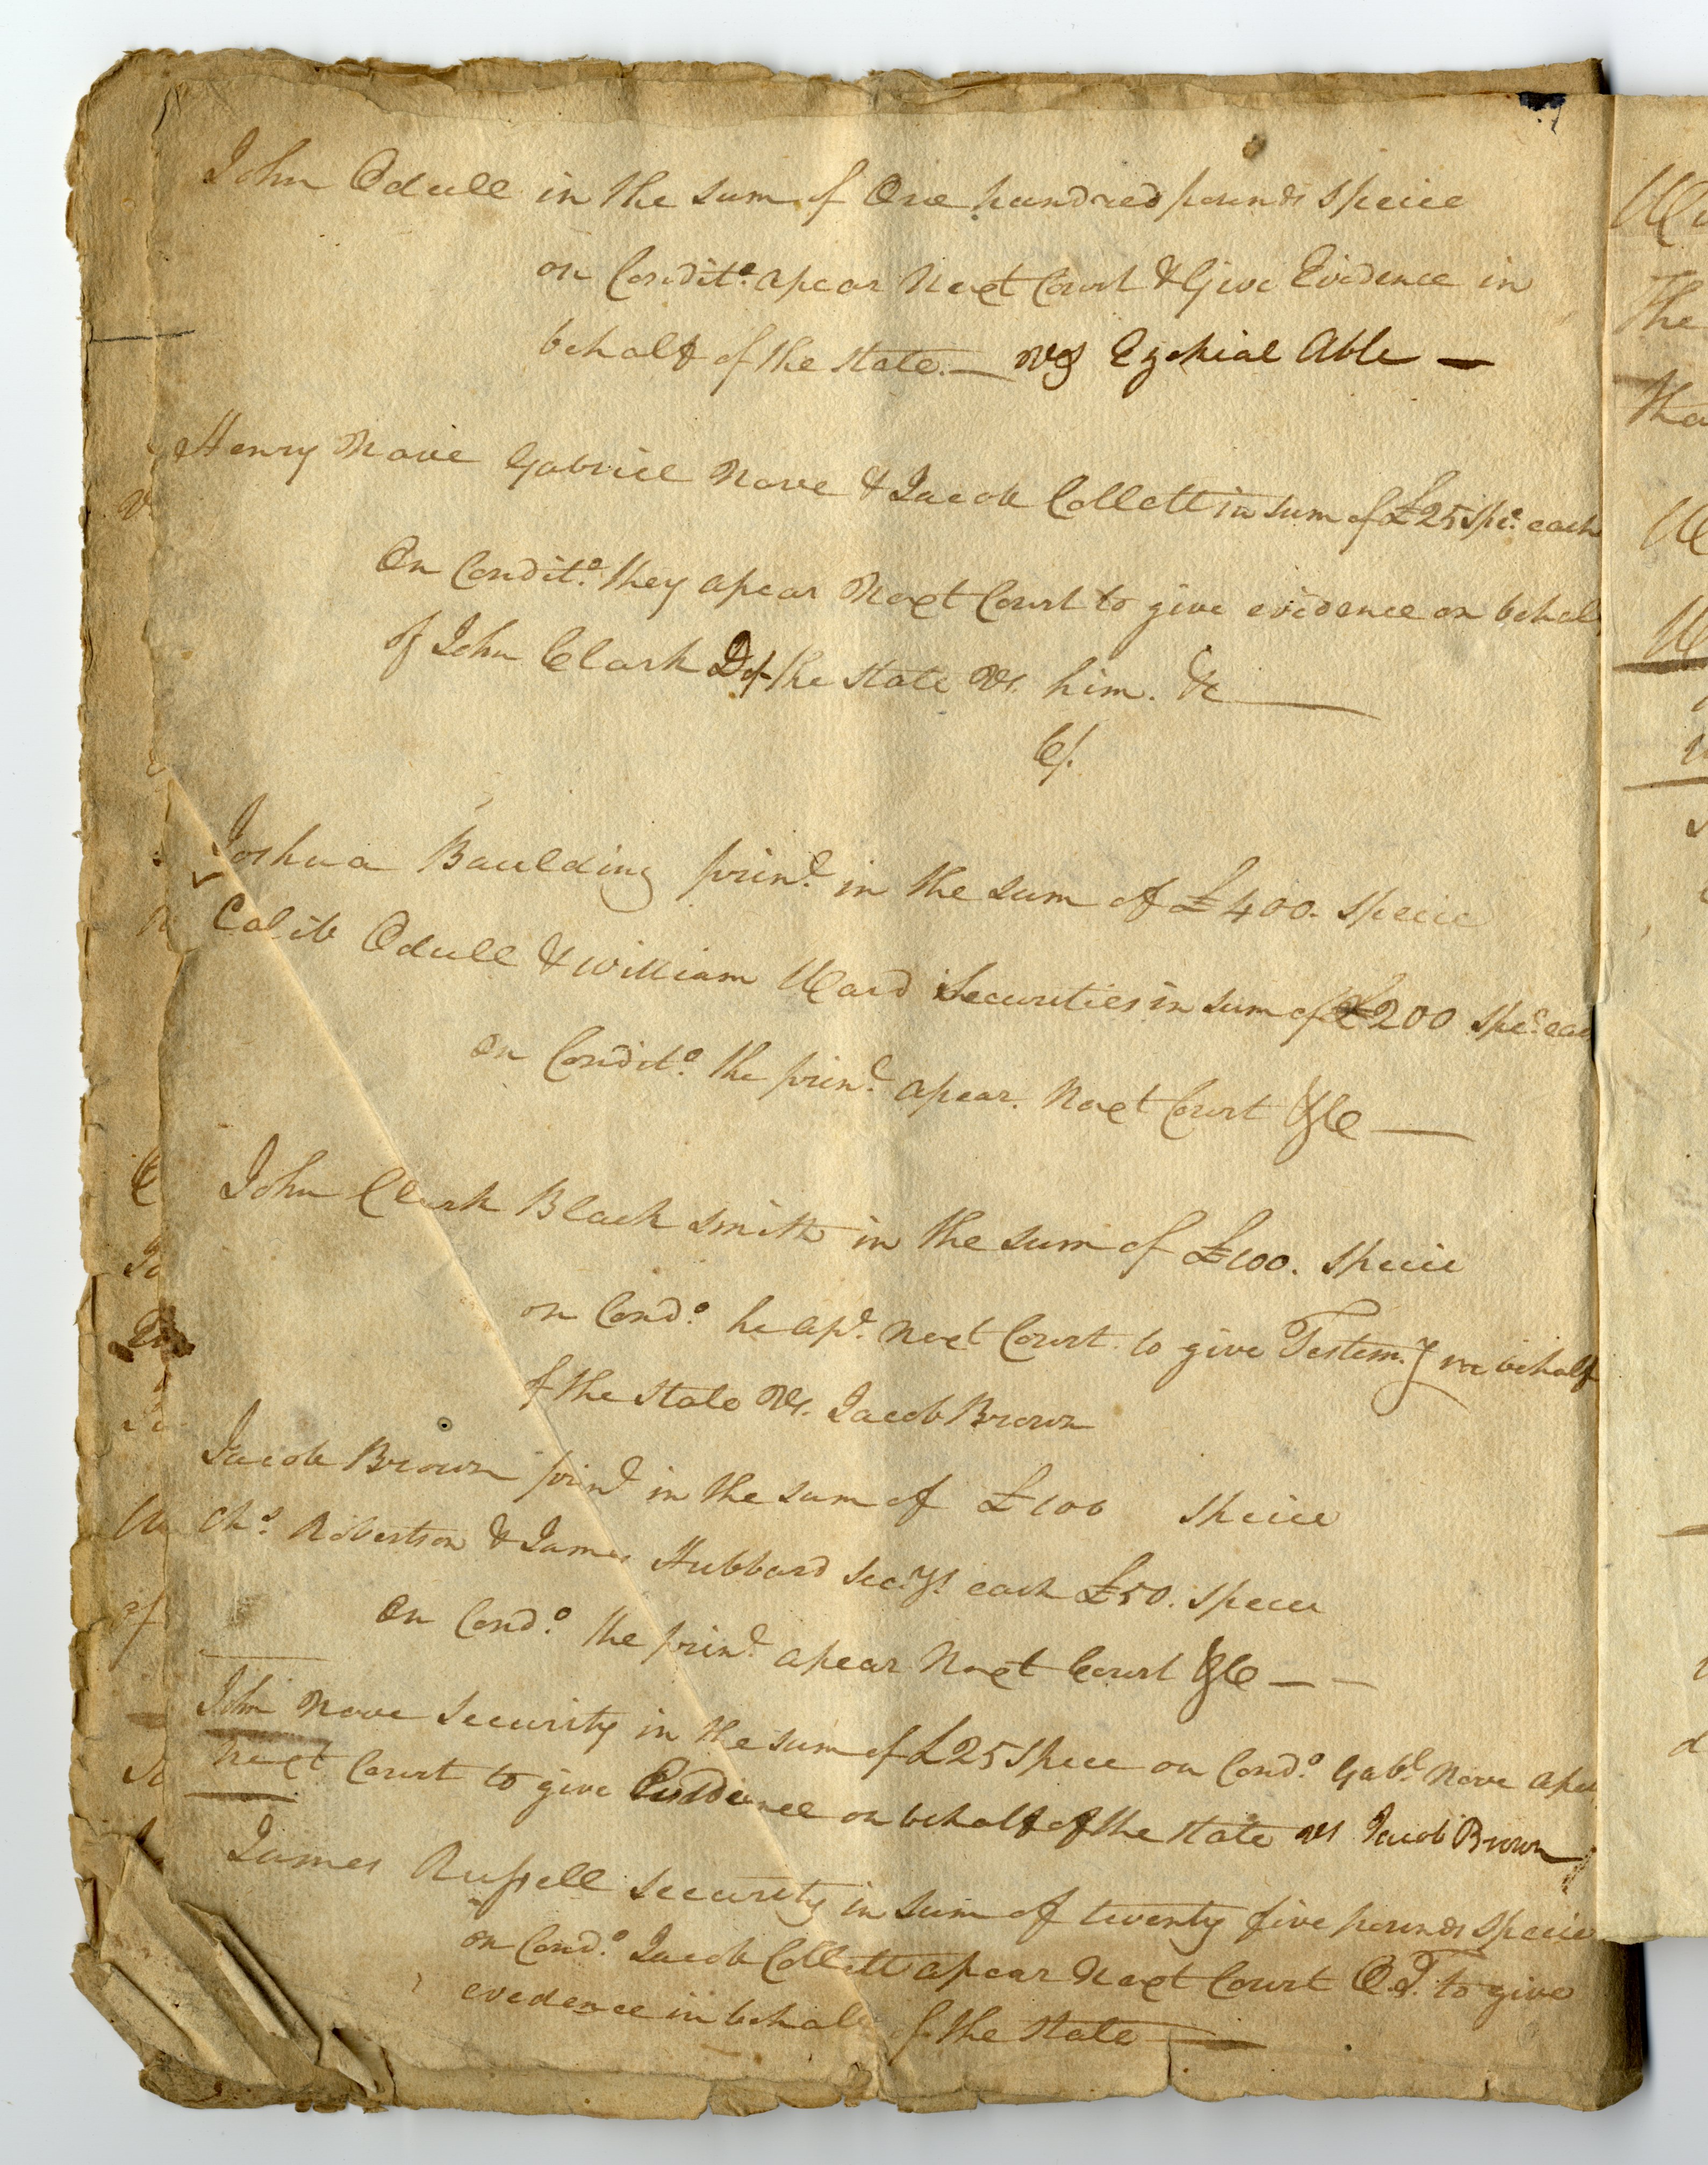 John Odull in the sum of One hundred pounds Speice
on Condit.º apear Next Court & Give Evidence in
behalf of the State. — vs Ezekial Able —
Henry Nave Gabriel Nave & Jacob Collett in sum of £25 Spe.º each
On Condit.º they apear Next Court to give evidence on behal
of John Clark Df the State vs. him. &c
C/.
Joshua Baulding prin.l in the sum of £400. Speice
Calib Odull & William Ward Securities in sum of £200 Spe.c eac
on Condit.º the prin.l apear. Next Court &C —
John Clark Black smith in the sum of £100. Speice
on Cond.º he ap.r Next Court to give Testem.y behalf
of the State vs. Jacob Brown
Jacob Brown prin.l in the sum of £100 Speice
Ch.s Robertson & James Hubbard Sec.ys each £50. Specee
on Cond.º the prin.l apear Next Court &C — —
John Nave Security in the sum of £25 Spece on Cond.º Gab.l Nave apea
Next Court to give Evidence on behalf of the State vs Jacob Brown
James Russell Security in Sum of twenty five pounds Speice
on Cond.º Jacob Collett apear Next Court O.T. to give
evedence in behalf of the State —